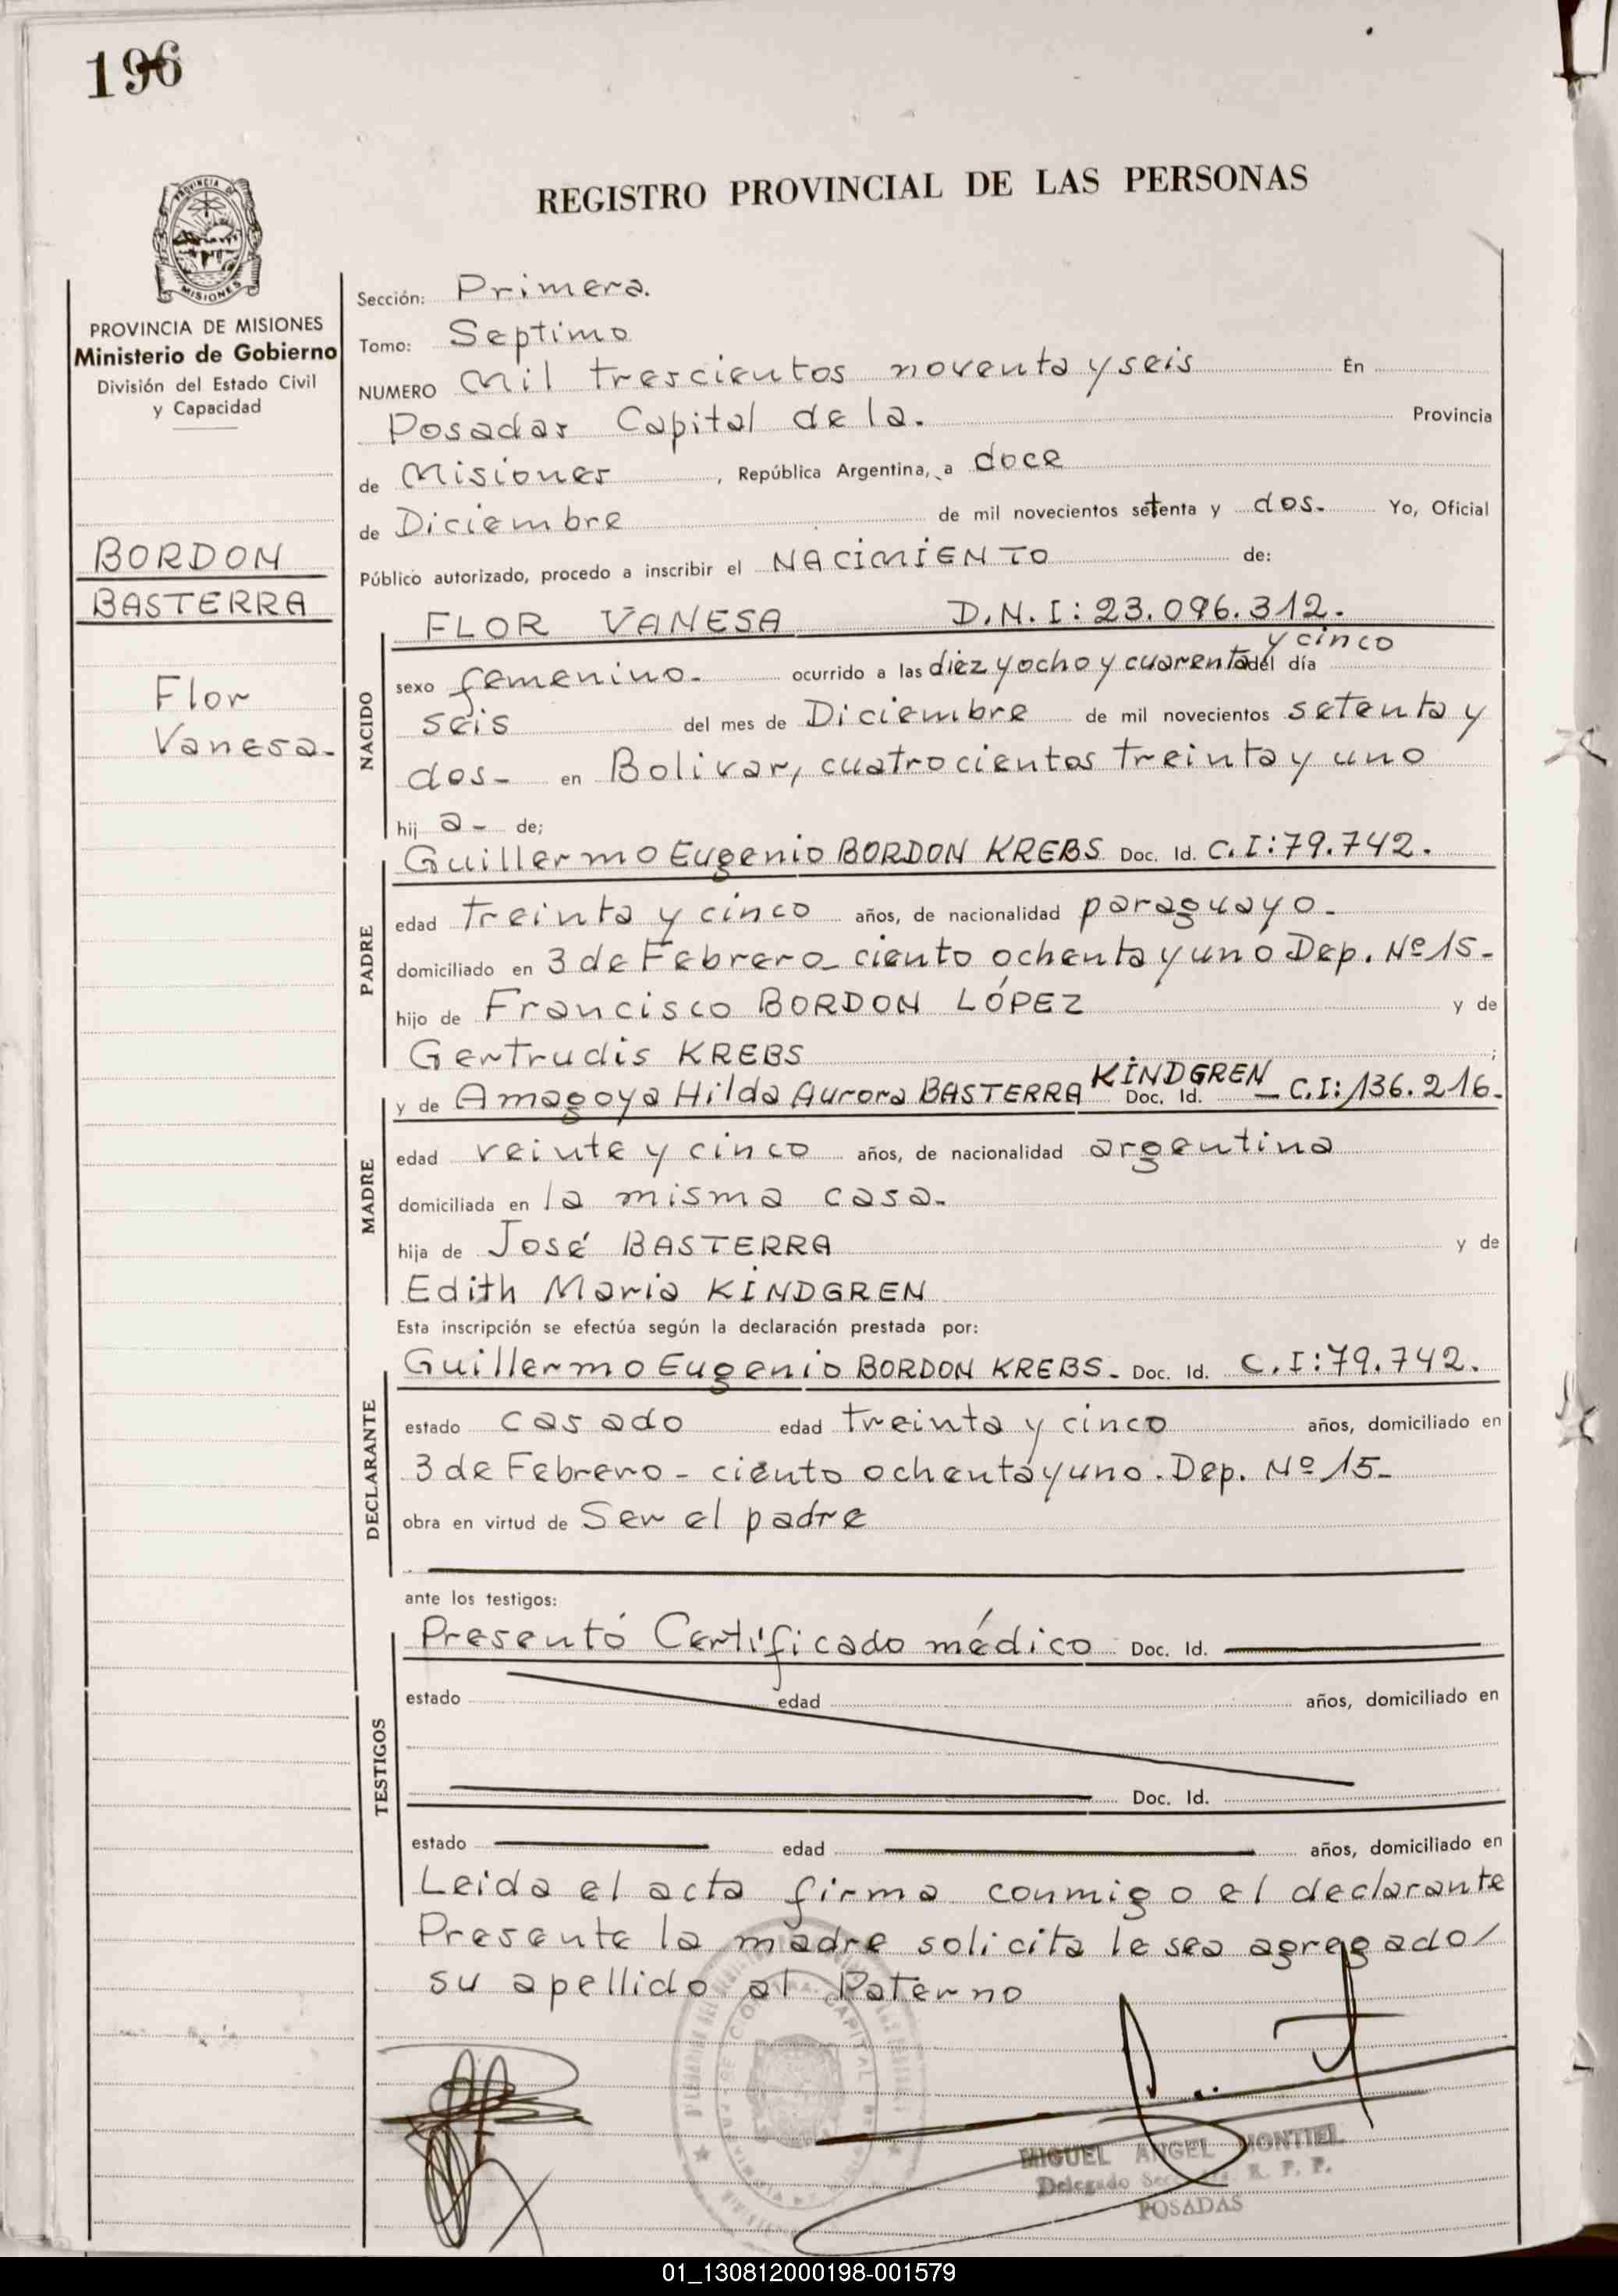 196
PROVINCIA DE
MISIONES
REGISTRO PROVINCIAL DE LAS PERSONAS
PROVINCIA DE MISIONES
Ministerio de Gobierno
División del Estado Civil
y Capacidad
BORDON
BASTERRA
Flor
Vanesa-
Sección: Primera.
Tomo: Septimo
NUMERO Mil trescientos noventa y seis En
Posadas Capital de la. Provincia
de Misiones, República Argentina, a doce
de Diciembre de mil novecientos setenta y dos.- Yo, Oficial
Público autorizado, procedo a inscribir el NACIMIENTO de:
NACIDO
FLOR VANESA D.N.I: 23.096.312.
y cinco
sexo femenino.- ocurrido a las diez y ocho y cuarenta del día
seis del mes de Diciembre de mil novecientos setenta y
dos- en Bolivar, cuatrocientos treinta y uno
hij a- de;
PADRE
Guillermo Eugenio BORDON KREBS Doc. Id. C.I:79.742.
edad treinta y cinco años, de nacionalidad paraguayo.-
domiciliado en 3 de Febrero- ciento ochenta y uno Dep. Nº 15-
hijo de Francisco BORDON LÓPEZ y de
Gertrudis KREBS ;
MADRE
y de Amagoya Hilda Aurora BASTERRA KINDGREN Doc. Id. - C.I: 136.216.
edad veinte y cinco años, de nacionalidad argentina
domiciliada en la misma casa-
hija de José BASTERRA y de
Edith Maria KINDGREN
Esta inscripción se efectúa según la declaración prestada por:
DECLARANTE
Guillermo Eugenio BORDON KREBS- Doc. Id. C.I:79.742.
estado casado edad treinta y cinco años, domiciliado en
3 de Febrero - ciento ochenta y uno. Dep. Nº 15-
obra en virtud de Ser el padre
ante los testigos:
TESTIGOS
Presentó Certificado médico Doc. Id.
estado edad años, domiciliado en
Doc. Id.
estado edad años, domiciliado en
Leida el acta firma conmigo el declarante
Presente la madre solicita le sea agregado/
su apellido al Paterno
MIGUEL ANGEL MONTIEL
Delegado R. P. P.
POSADAS
01_130812000198-001579